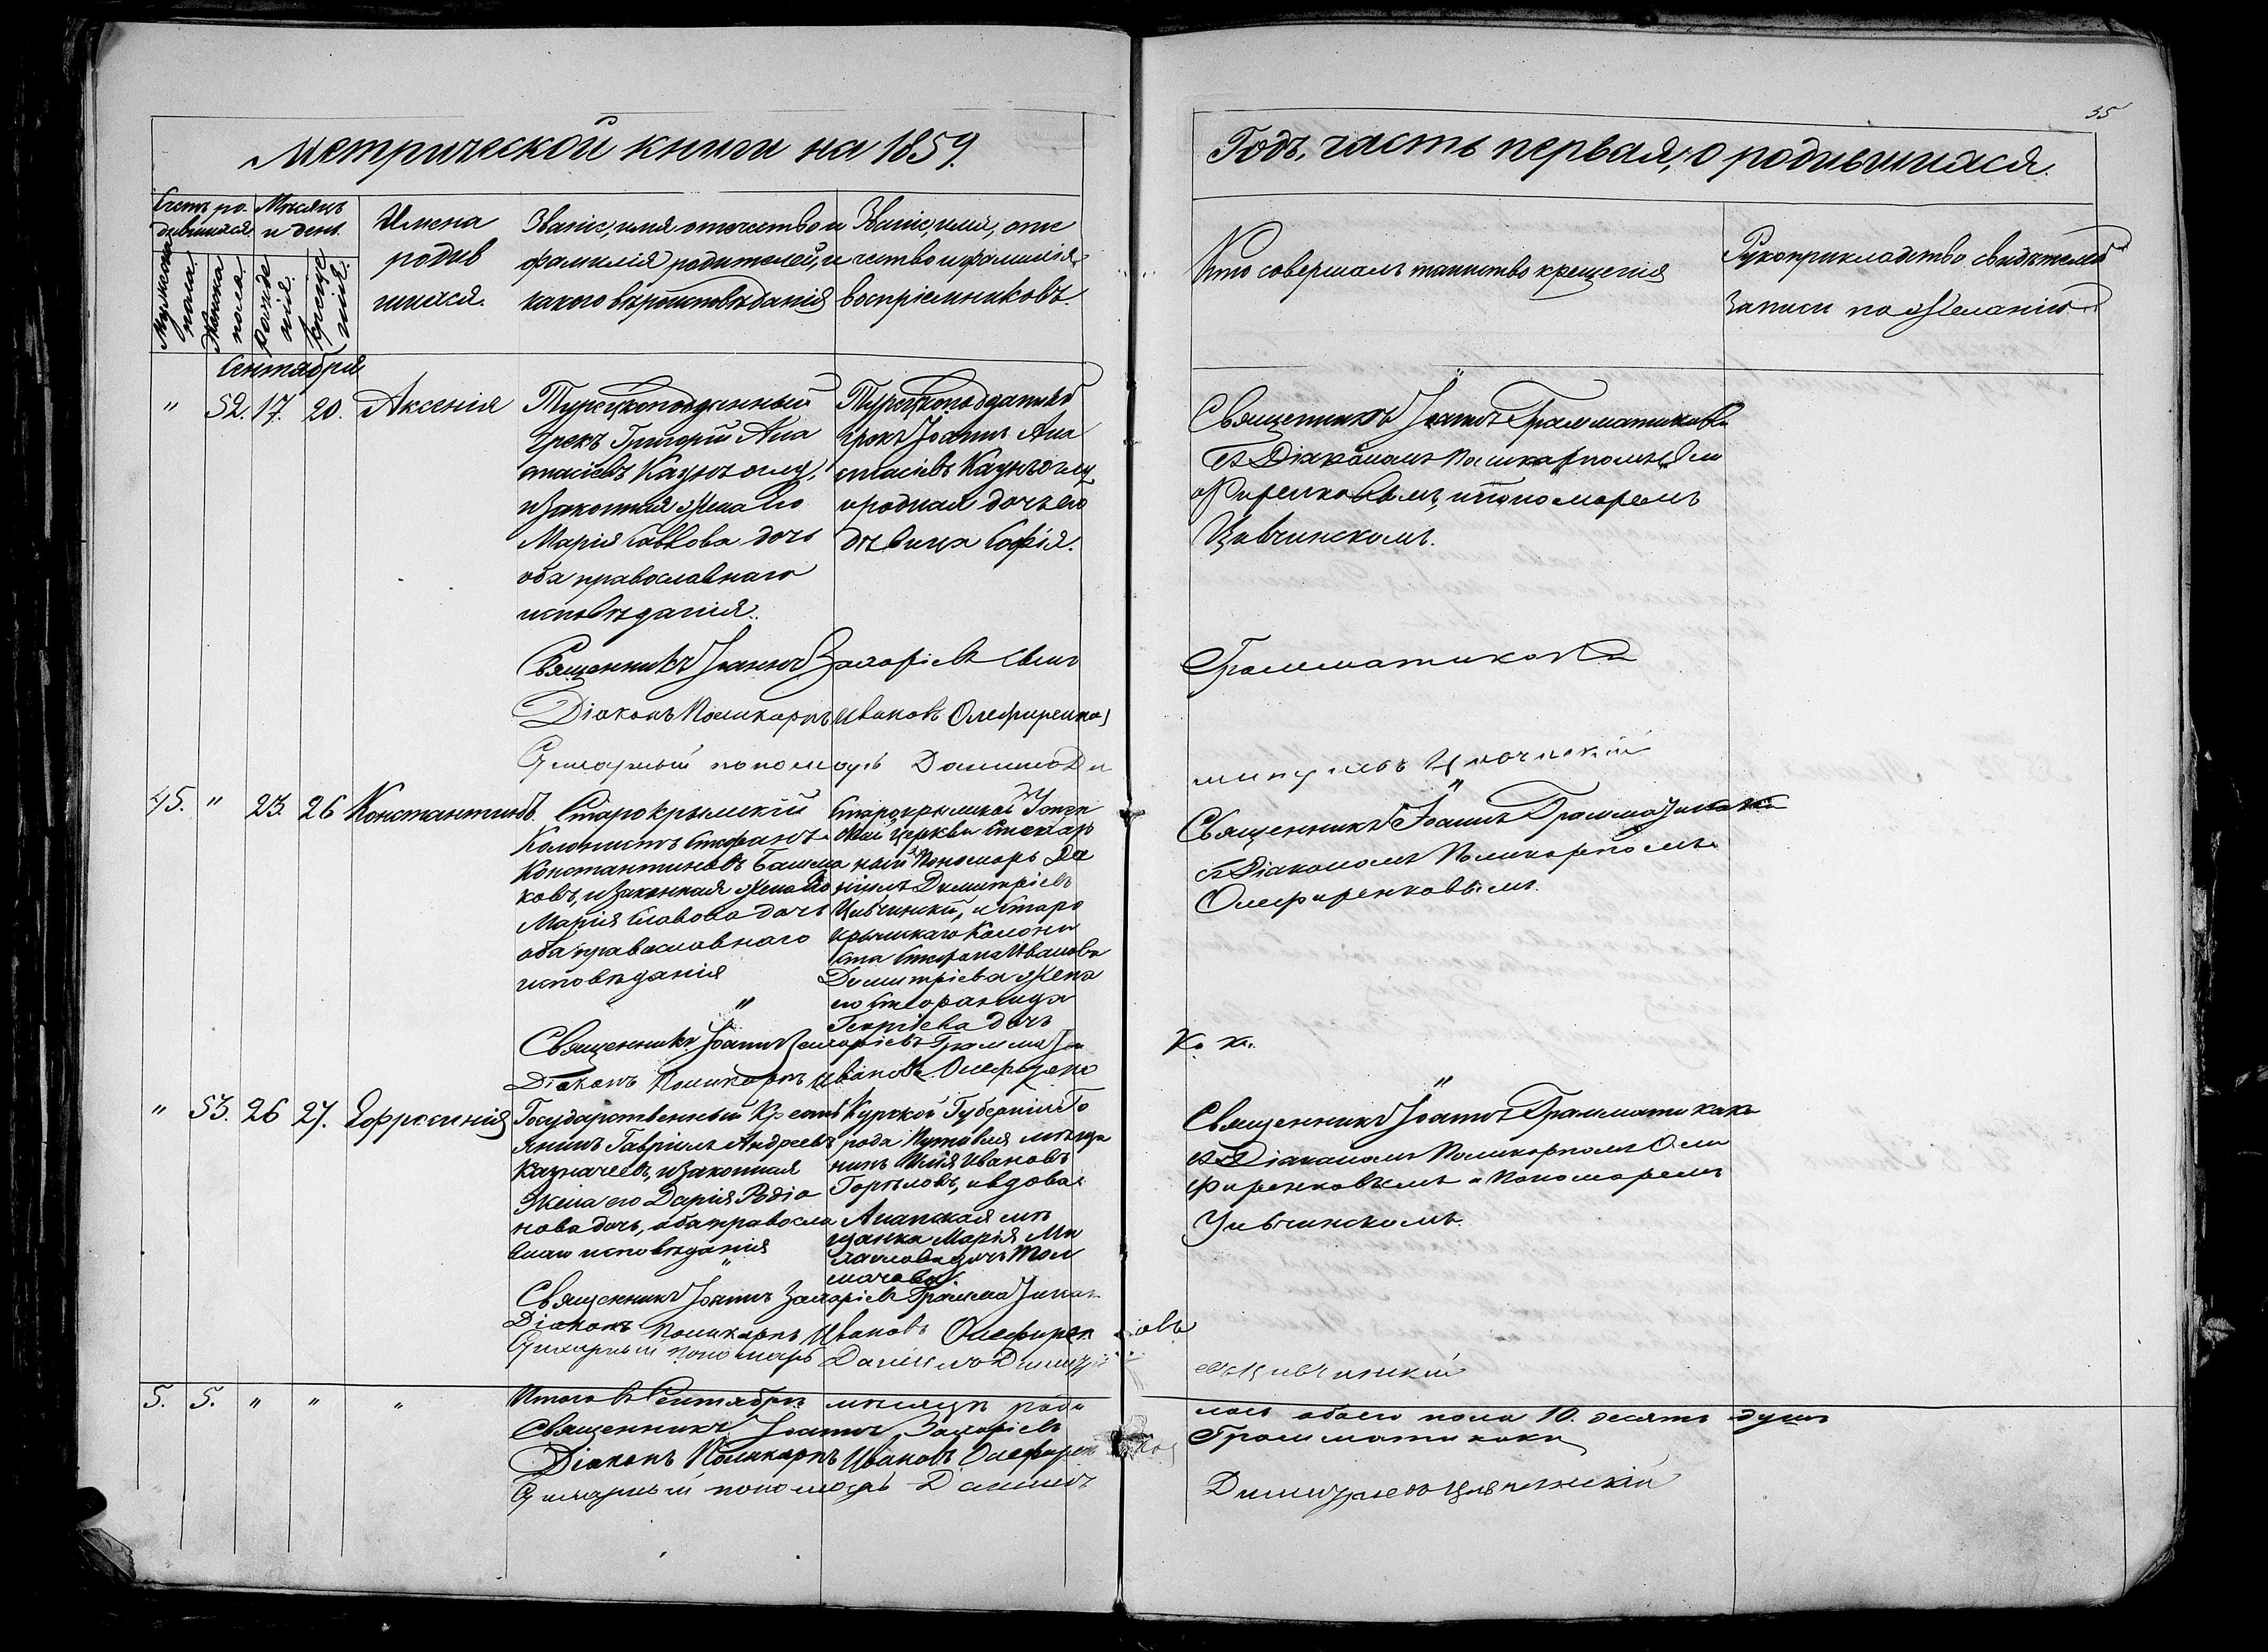 35
Метрической книги на 1859.
Годъ, часть первая, о родившихся.
Счетъ ро-
дившихся.
Мужеска
пола.
Женска
пола.
Мѣсяцъ
и день.
рожде
нія.
креще
нія.
Имена
родив
шихся.
Званіе, имя отечество и
фамилія родителей, и
какого вѣроисповѣданія
Званіе, имя, оте
чество и фамилія
воспріемниковъ.
Кто совершалъ таинство крещенія
Рукоприкладство свидѣтелей
записи по желанію
Сентября
" 52. 17. 20. Аксенія
Турецкоподданный
Грекъ Григорій Ана
стасіевъ Казунъ оглу,
и законная жена его
Марія Саввова дочь
оба православнаго
исповѣданія.
Турецкоподданный
Грекъ Іоаннъ Ана
стасіевъ Казунъ оглу
и родная дочь его
дѣвица Софія.
Священникъ Іоаннъ Грамматикаки
съ Діакономъ Поликарпомъ Оли
фиренковымъ, и пономаремъ
Цивчинскимъ.
Священникъ Іоаннъ Захаріевъ сынъ
Грамматикаки
Діаконъ Поликарпъ Ивановъ Олефиренко
пономарь Даніилъ Ди
45. " 23. 26 Константинъ.
Старокрымскій
Колонистъ Стефанъ
Константиновъ Башма
ковъ, и законная жена его
Марія Славова дочь
оба православнаго
исповѣданія
"
Старокрымской Успен
ской церкви
ный Пономарь Да
ніилъ Димитріевъ
Цивчинскій, и Старо
крымскаго Колони
ста Стефана Иванова
Димитріева жена
его
Георгіева дочь
"
Священникъ Іоаннъ Грамматикаки
съ Діакономъ Поликарпомъ
Олефиренковымъ.
Священникъ Іоаннъ Захаріевъ Граммати
каки
Діаконъ Поликарпъ Ивановъ Олефиренко
" 53. 26 27. Ефросинія
Государственный Кресть
янинъ Гавріилъ Андреевъ
Казначеевъ, и законная
жена его Дарія Родіо
нова дочь, оба правосла
внаго исповѣданія
"
Курской Губерніи го
рода Путивля мѣща
нинъ Илія Ивановъ
Горѣловъ, и вдова
Анапская мѣ
щанка Марія Ми
хаилова дочь Тол
мачова.
"
Священникъ Іоаннъ Грамматикаки
съ Діакономъ Поликарпомъ Оли
фиренковымъ и Пономаремъ
Цивчинскимъ.
Священникъ Іоаннъ Захаріевъ Грамматикаки
Діаконъ Поликарпъ Ивановъ Олефирен
ковъ
пономарь Даніилъ Димитрі
евъ Цивчинскій
5. 5. " " "
Итого въ Сентябрѣ мѣсяцѣ роди
лось обоего пола 10. десять душъ
Священникъ Іоаннъ Захаріевъ
Грамматикаки
Діаконъ Поликарпъ Ивановъ Олефиренко
пономарь Даніилъ
Димитріевъ Цивчинскій